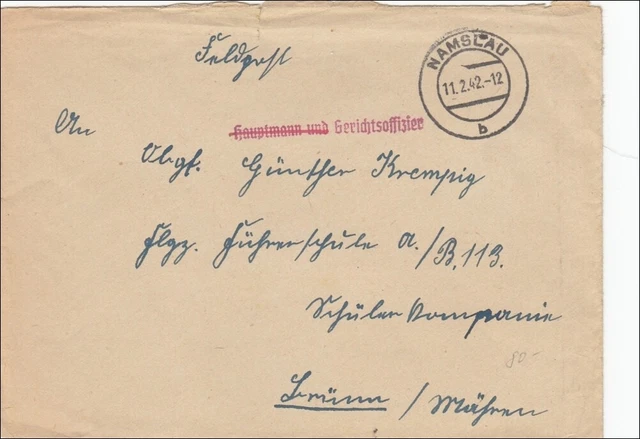 Feldpost
NAMSLAU
11.2.42.-12
b
Hauptmann und Gerichtsoffizier
An
Günther Krempig
Flgz. Führerschule A./B.113.
Schüler Kompanie
80.-
Brünn / Mähren